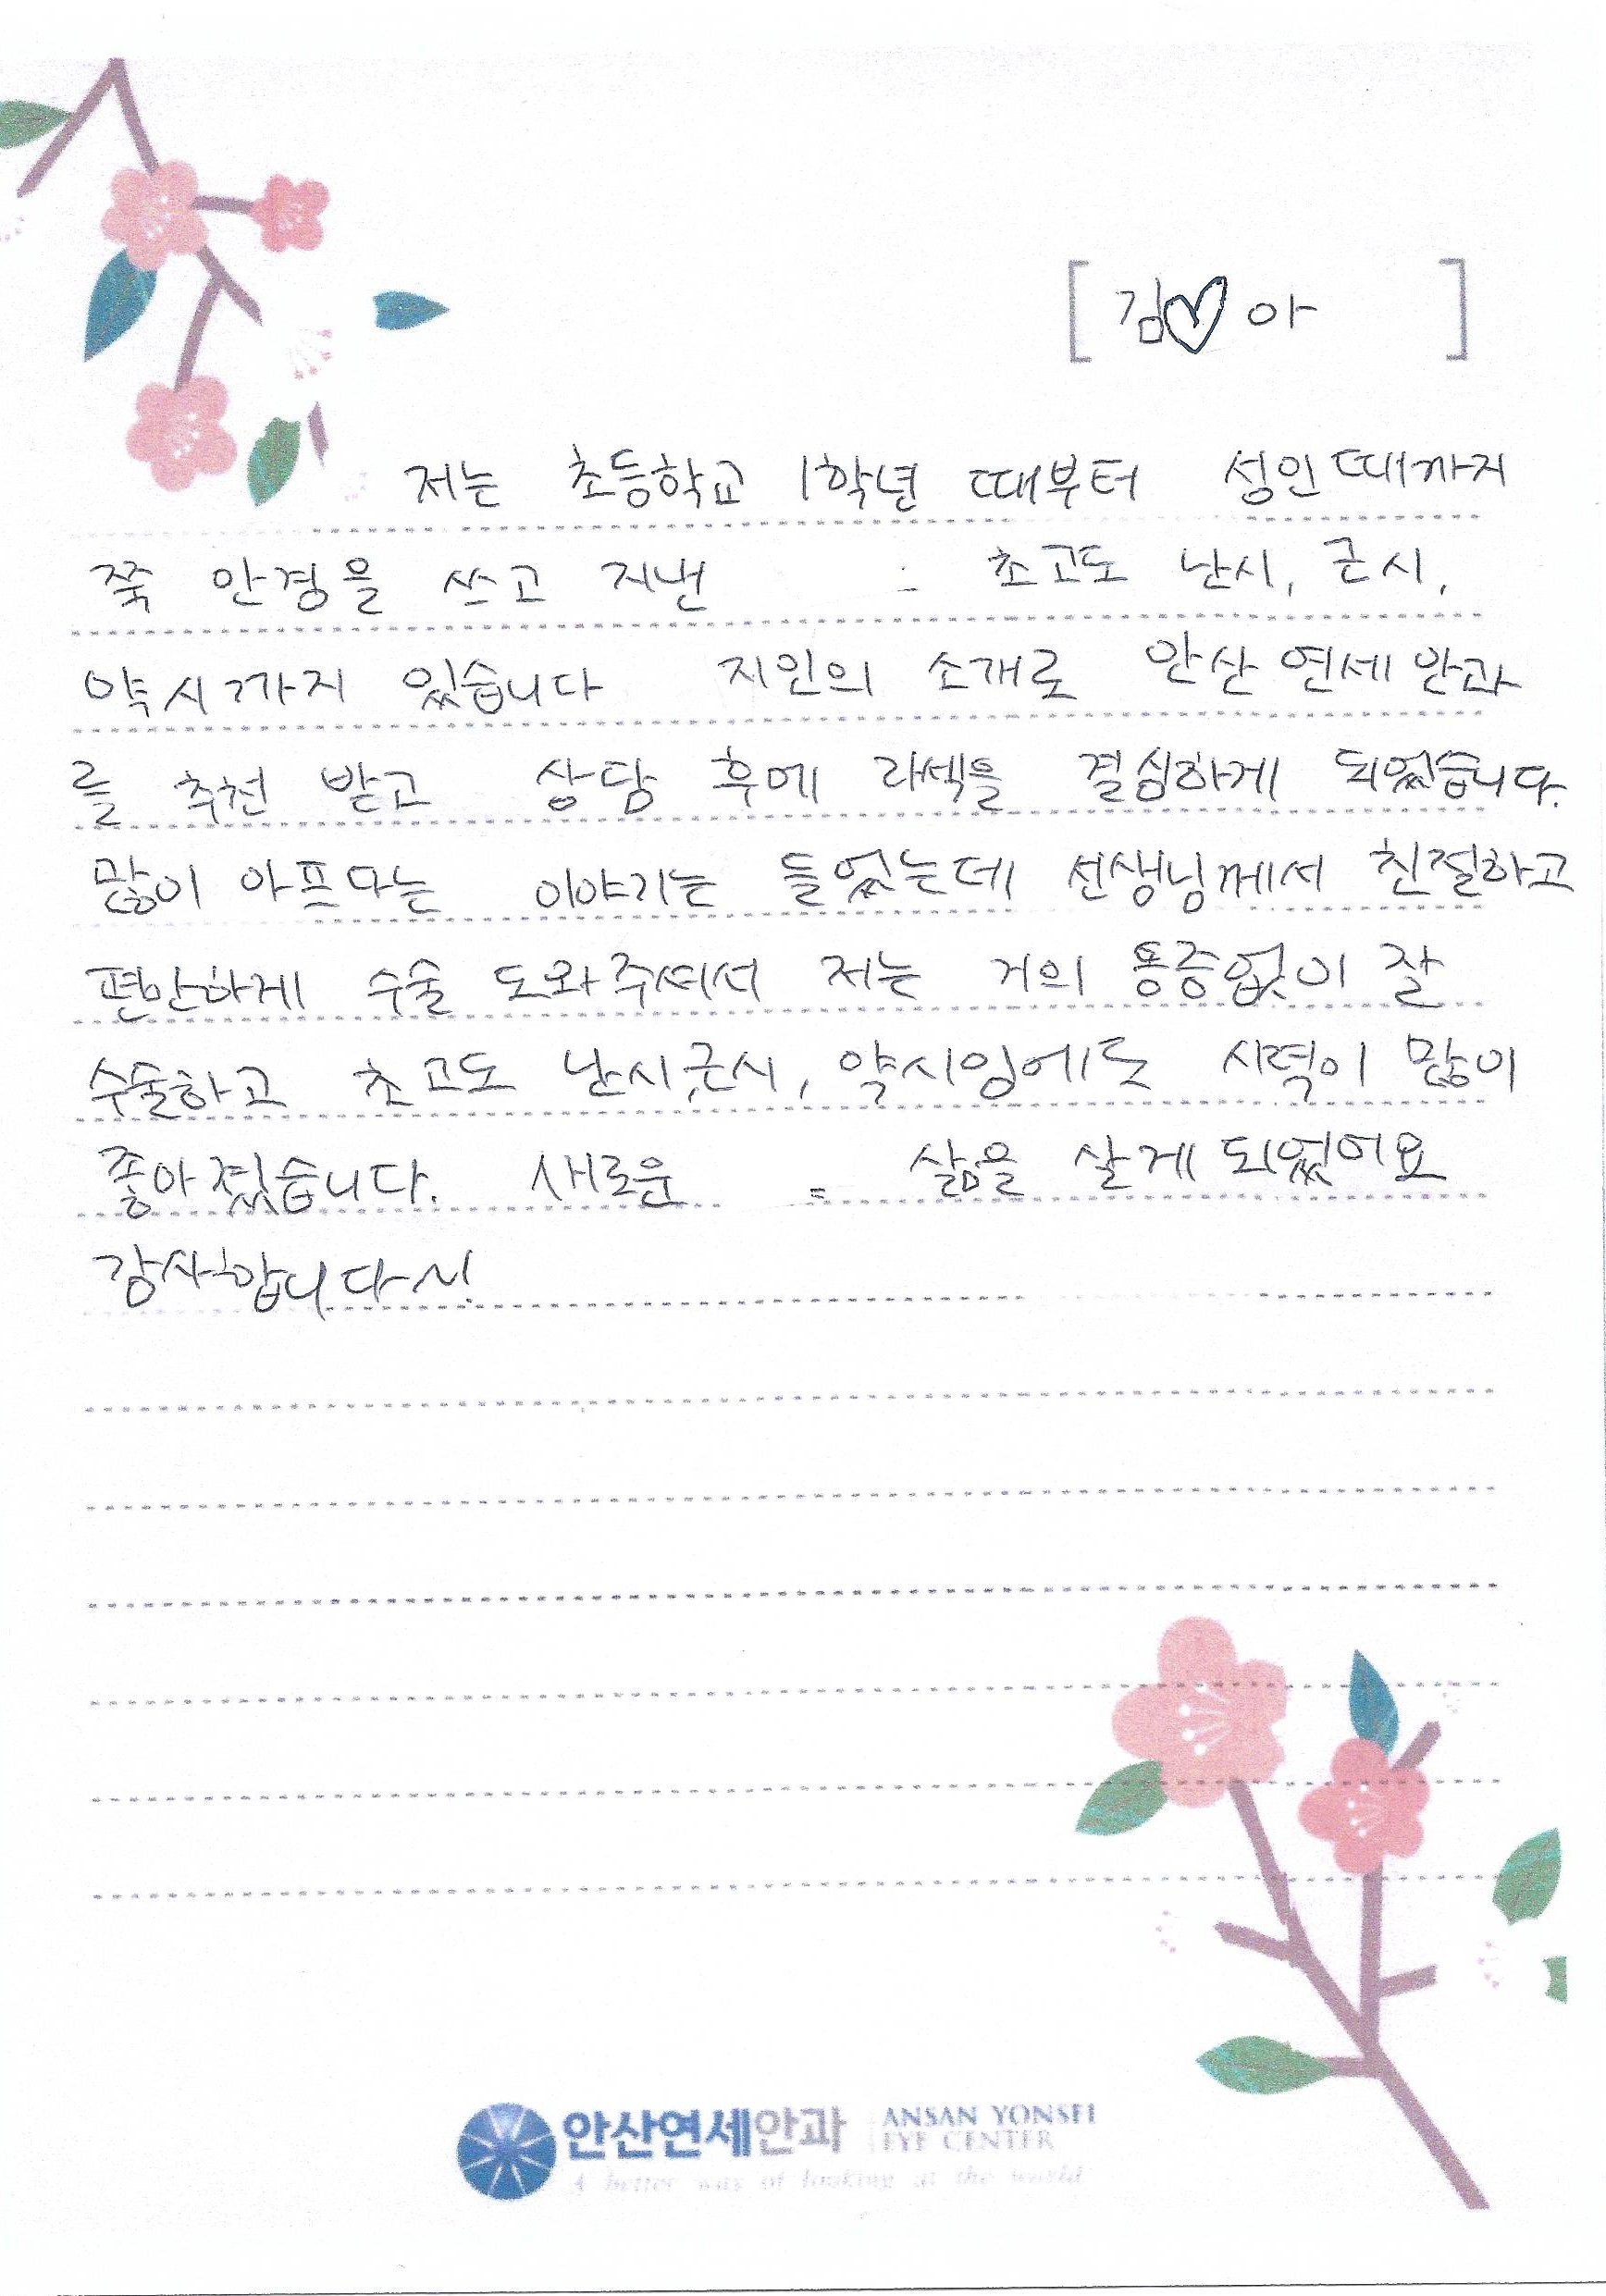 [ 김♡아 ]
저는 초등학교 1학년 때부터 성인때까지
쭉 안경을 쓰고 지낸 초고도 난시, 근시,
약시까지 있습니다 지인의 소개로 안산연세안과
를 추천 받고 상담 후에 라섹을 결심하게 되었습니다.
많이 아프다는 이야기는 들었는데 선생님께서 친절하고
편안하게 수술 도와주셔서 저는 거의 통증없이 잘
수술하고 초고도 난시,근시, 약시임에도 시력이 많이
좋아졌습니다. 새로운 삶을 살게 되었어요
감사합니다~!
안산연세안과 ANSAN YONSEI
EYE CENTER
A better way of looking at the world